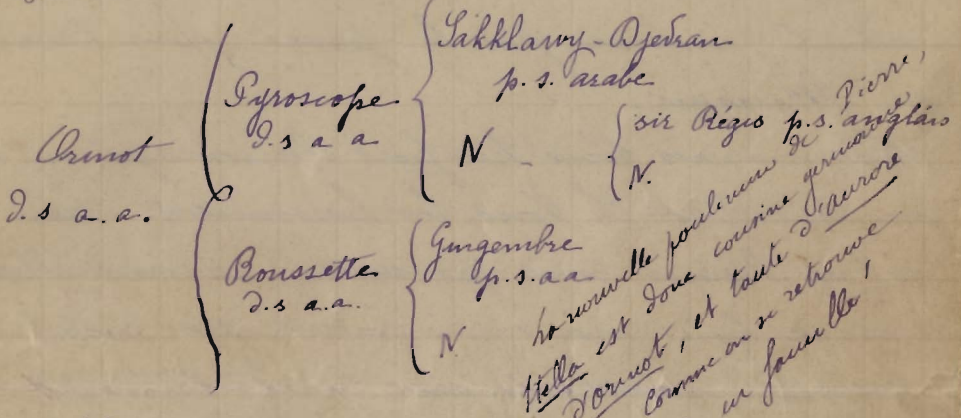 Ormot
d. s a. a.
Gyroscope
d. s a a
Sakklawy-Djedran
p. s. arabe
N -
sir Régis p. s. anglais
N.
Roussette
d. s a. a.
Gingembre
p. s. a a
N
La nouvelle pouliche de Pierre,
Stella est donc cousine germaine
d'Ormot, et tante d'aurore
comme on se retrouve
en famille,